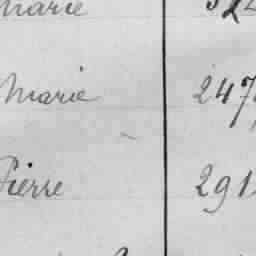 Marie
Marie 247
Pierre 291